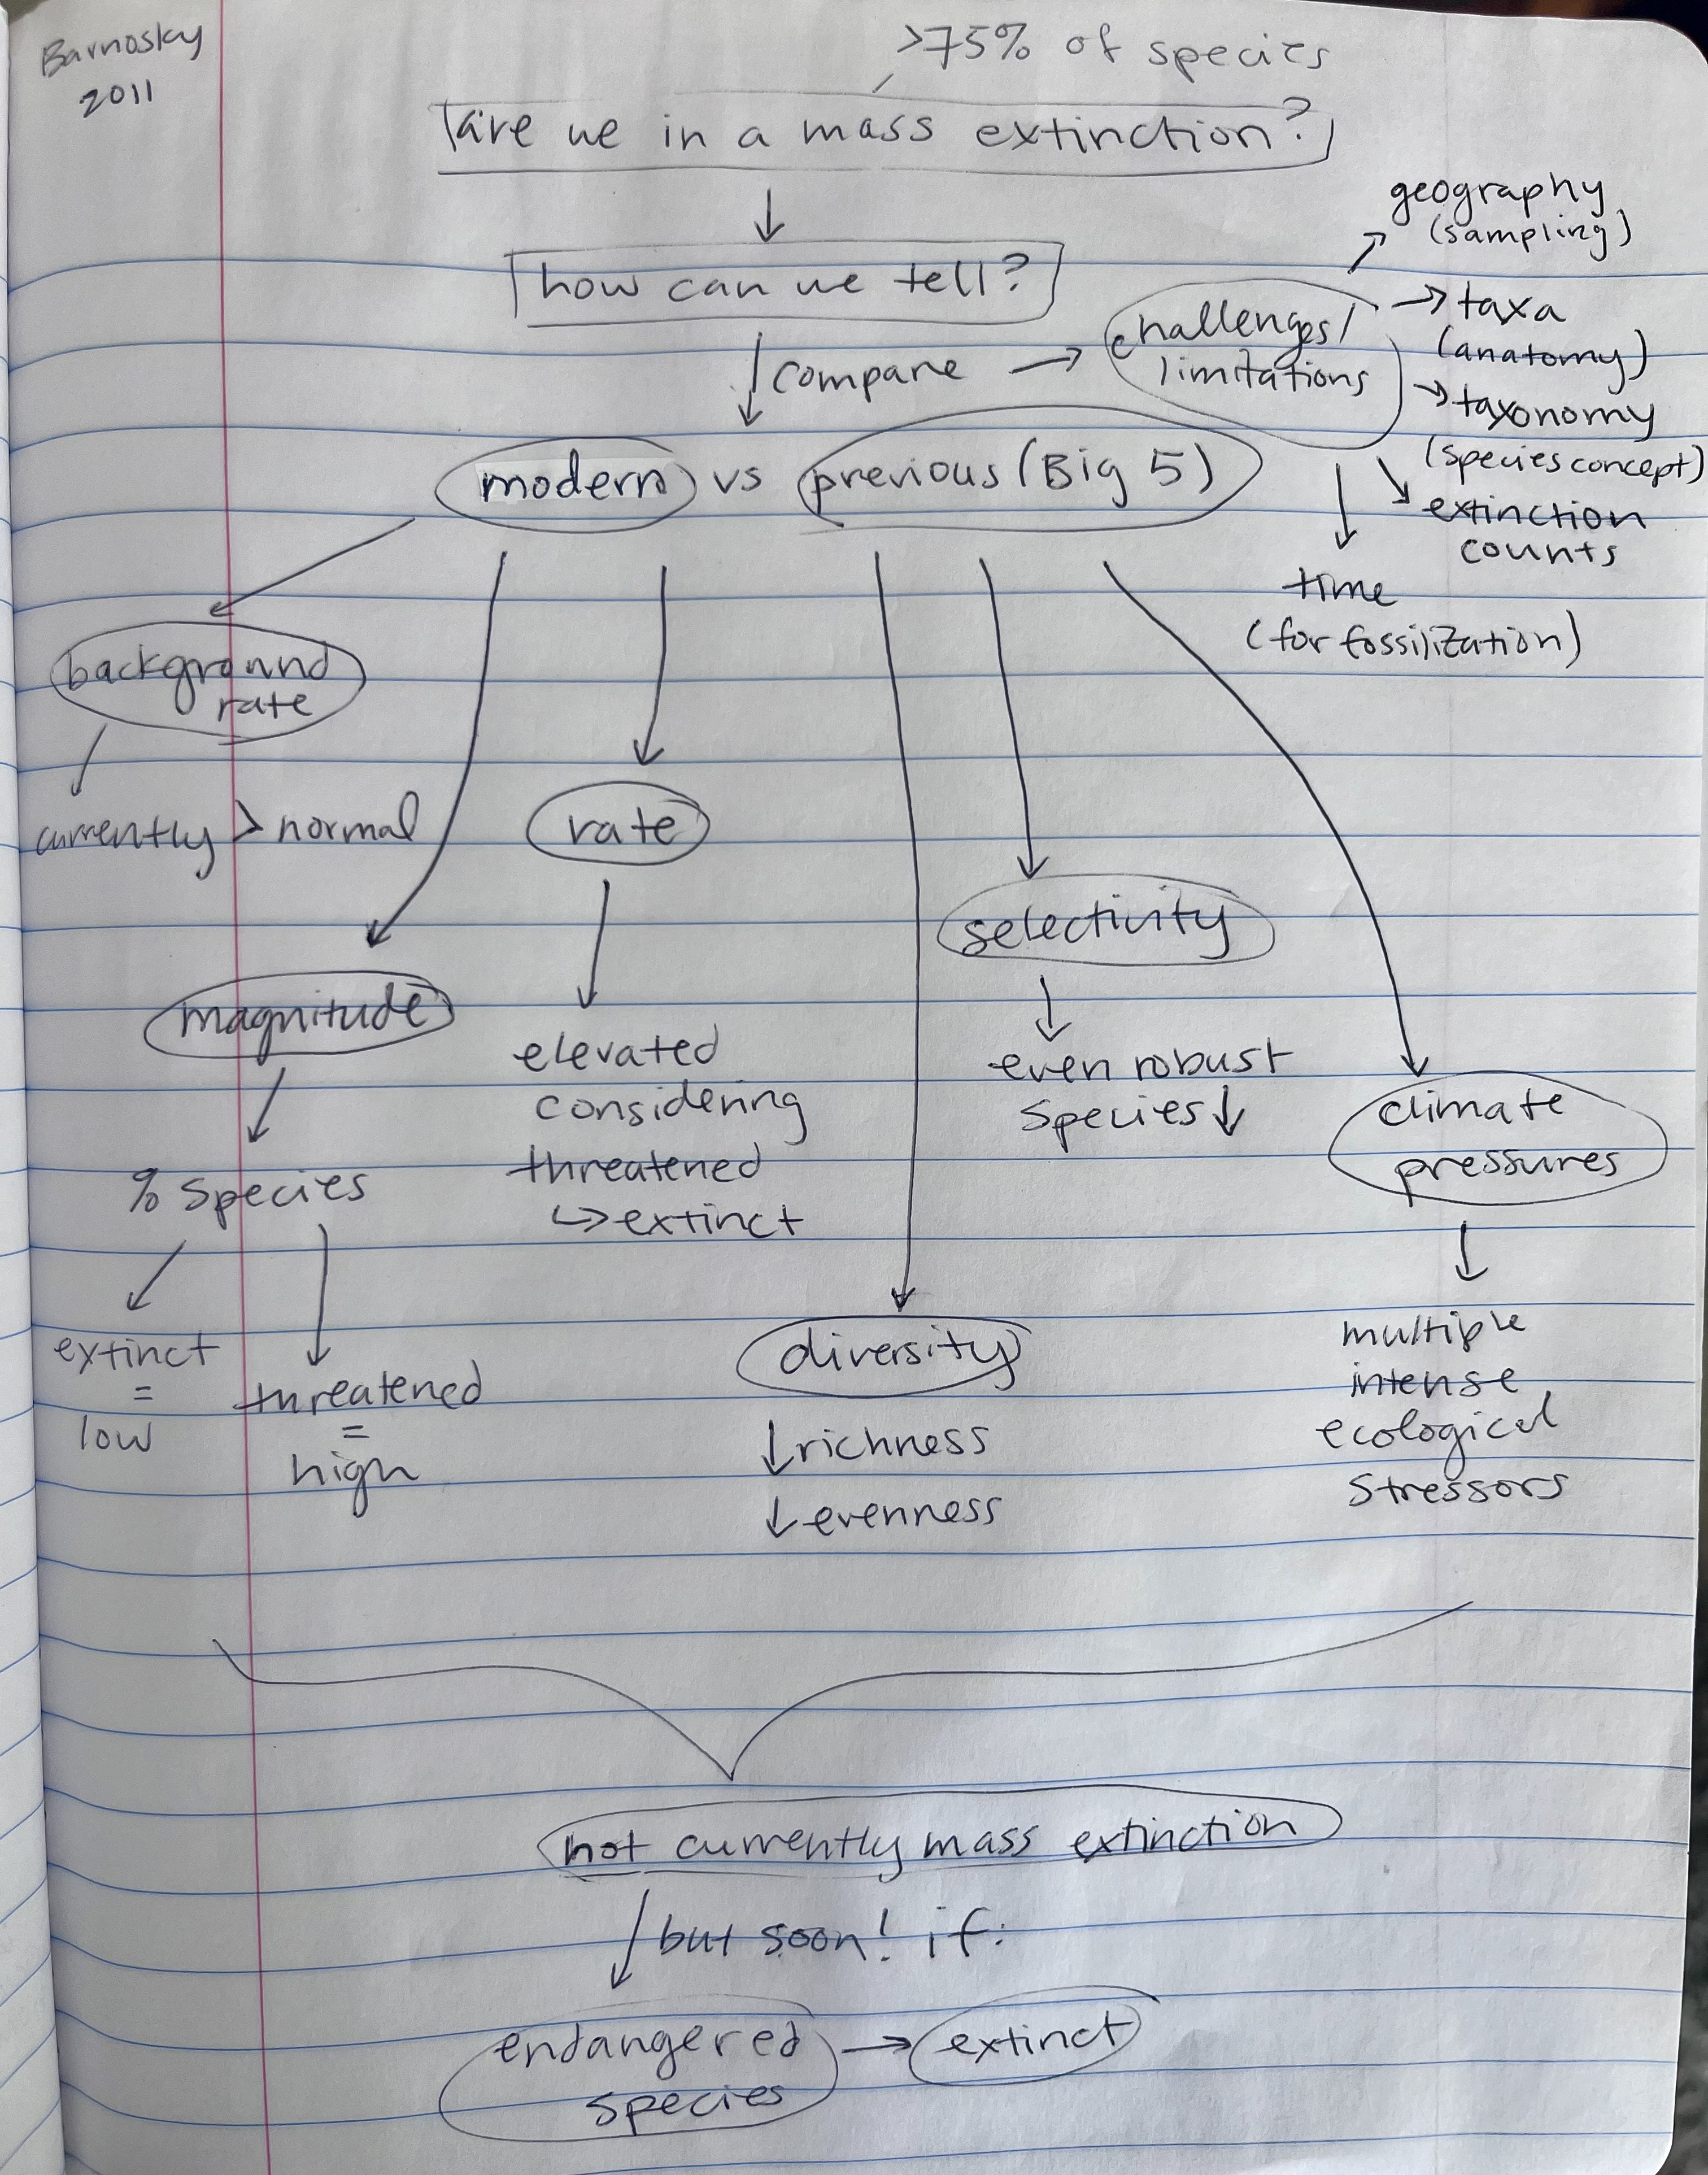 Barnosky
2011
>75% of species
are we in a mass extinction?
how can we tell?
compare → challenges/
limitations
→ geography
(sampling)
→ taxa
(anatomy)
→ taxonomy
(species concept)
→ extinction
counts
time
(for fossilization)
modern vs previous (Big 5)
background
rate
currently > normal
magnitude
% species
extinct
=
low
threatened
=
high
rate
elevated
considering
threatened
↳ extinct
diversity
↓ richness
↓ evenness
selectivity
even robust
species ↓
climate
pressures
multiple
intense
ecological
stressors
not currently mass extinction
but soon! if:
endangered
species → extinct